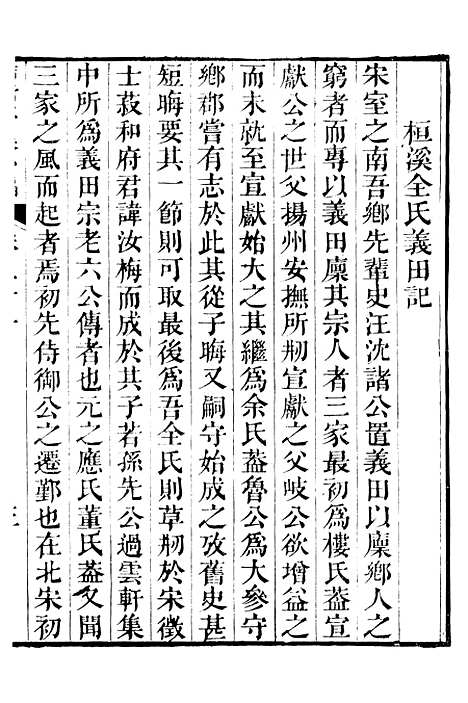 桓溪全氏義田記
宋室之南吾鄉先輩史汪沈諸公置義田以廩鄉人之
窮者而專以義田廩其宗人者三家最初爲樓氏葢宣
獻公之世父揚州安撫所刱宣獻之父岐公欲增益之
而未就至宣獻始大之其繼爲余氏葢魯公爲大參守
鄉郡嘗有志於此其從子晦又嗣守始成之攷舊史甚
短晦要其一節則可取最後爲吾全氏則草刱於宋徵
士菽和府君諱汝梅而成於其子若孫先公過雲軒集
中所爲義田宗老六公傳者也元之應氏董氏葢又聞
三家之風而起者焉初先侍御公之遷鄞也在北宋初